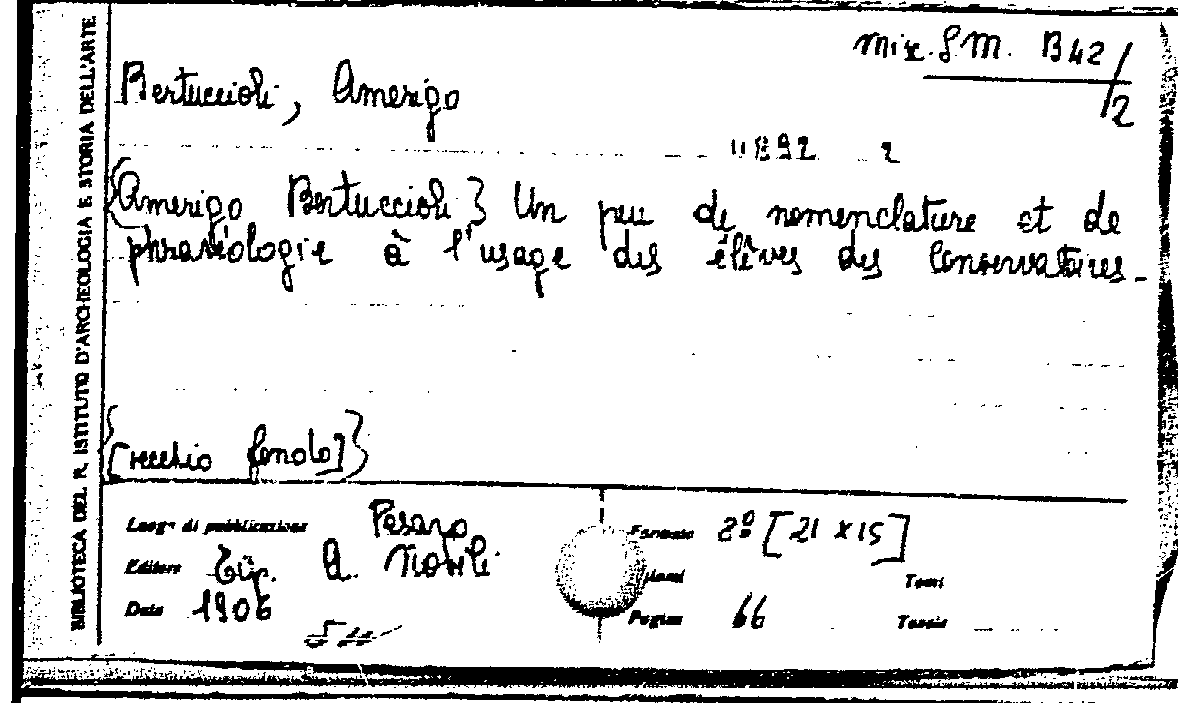 BIBLIOTECA DEL R. ISTITUTO D'ARCHEOLOGIA E STORIA DELL'ARTE
Misc. S M. B 42/2
Bertuccioli, Amerigo
11892 2
{Amerigo Bertuccioli} Un peu de nomenclature et de
phraséologie à l'usage des élèves des Conservatoires.
{[vecchio fondo]}
Luogo di pubblicazione Pesaro
Editore Tip. A. Nobili
Data 1906
Formato 8º [21 x 15]
Tomi
Pagine 66
Tavole